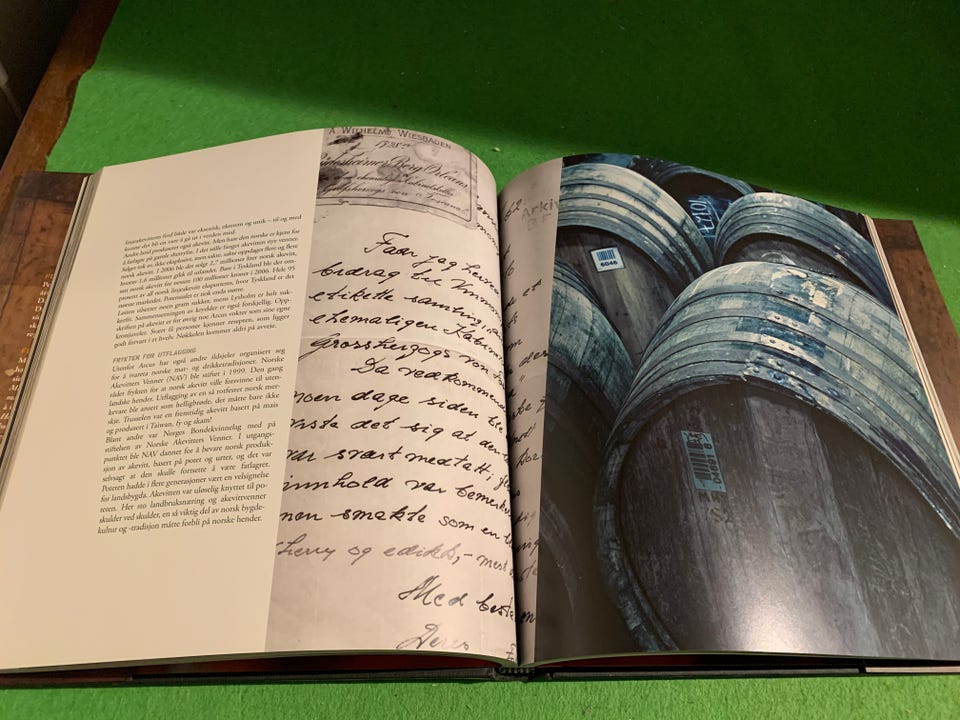 linjeakevittens ferd både var eksotisk, eksosm og unik – til og med
kunne dyr bli en vare å gå ut i verden med.
Andre land produserer også akevitt. Men bare den norske er kjent for
å fatlagre på gamle sherryfat. I det stille fanget akevitten nye venner.
Salget tok av, ikke eksplosivt, men sakte, sakte oppdaget flere og flere
norsk akevitt. I 2006 ble det solgt 2,7 millioner liter norsk akevitt,
hvorav 1,6 millioner gikk til utlandet. Bare i Tyskland ble det om-
satt norsk akevitt for nesten 100 millioner kroner i 2006. Hele 95
prosent av all norsk linjeakevitt eksporteres, hvor Tyskland er det
største markedet. Potensialet er nok enda større.
Løiten tilsetter noen gram sukker, mens Lysholm er helt suk-
kerfri. Sammensetningen av krydder er også forskjellig. Opp-
skriften på akevitt er for øvrig noe Arcus vokter som sine egne
kronjuveler. Svært få personer kjenner resepten, som ligger
godt forvart i et hvelv. Nøkkelen kommer aldri på avveie.
FRYKTEN FOR UTFLAGGING
Utenfor Arcus har også andre ildsjeler organisert seg
for å ivareta norske mat- og drikketradisjoner. Norske
Akevitters Venner (NAV) ble stiftet i 1999. Den gang
rådet frykten for at norsk akevitt ville forsvinne til uten-
landske hender. Utflagging av en så rotfestet norsk mer-
kevare ble ansett som helligbrøde, det måtte bare ikke
skje. Trusselen var en fremtidig akevitt basert på mais
og produsert i Taiwan, fy og skam!
Blant andre var Norges Bondekvinnelag med på
stiftelsen av Norske Akevitters Venner. I utgangs-
punktet ble NAV dannet for å bevare norsk produk-
sjon av akevitt, basert på potet og urter, og det var
selvsagt at den skulle fortsette å være fatlagret.
Poteten hadde i flere generasjoner vært en velsignelse
for landsbygda. Akevitten var uløselig knyttet til po-
teten. Her sto landbruksnæring og akevittvenner
skulder ved skulder, en så viktig del av norsk bygde-
kultur og -tradisjon måtte forbli på norske hender.
A. WILHELMJ, WIESBADEN
Faar jeg levere
bidrag til Vinmo
etikette samling,
ehemaligen Kabine
grossherzogs von
Da vedkommen
noen dage siden ble
det sig at den
var svært medtatt,
innhold var bemerk
men smakte som en
sherry og edikk, - mest
Med beste
Deres
62
Arkiv
6046
04691 8